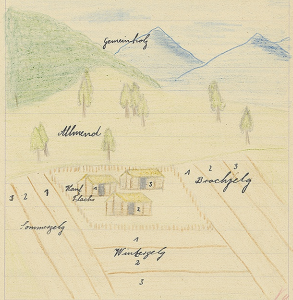 Gemeinholz
Allmend
Hanf
Flachs
1
3
2
1 2 3
Brachzelg
1 2 3
Sommerzelg
1
Winterzelg
2
3